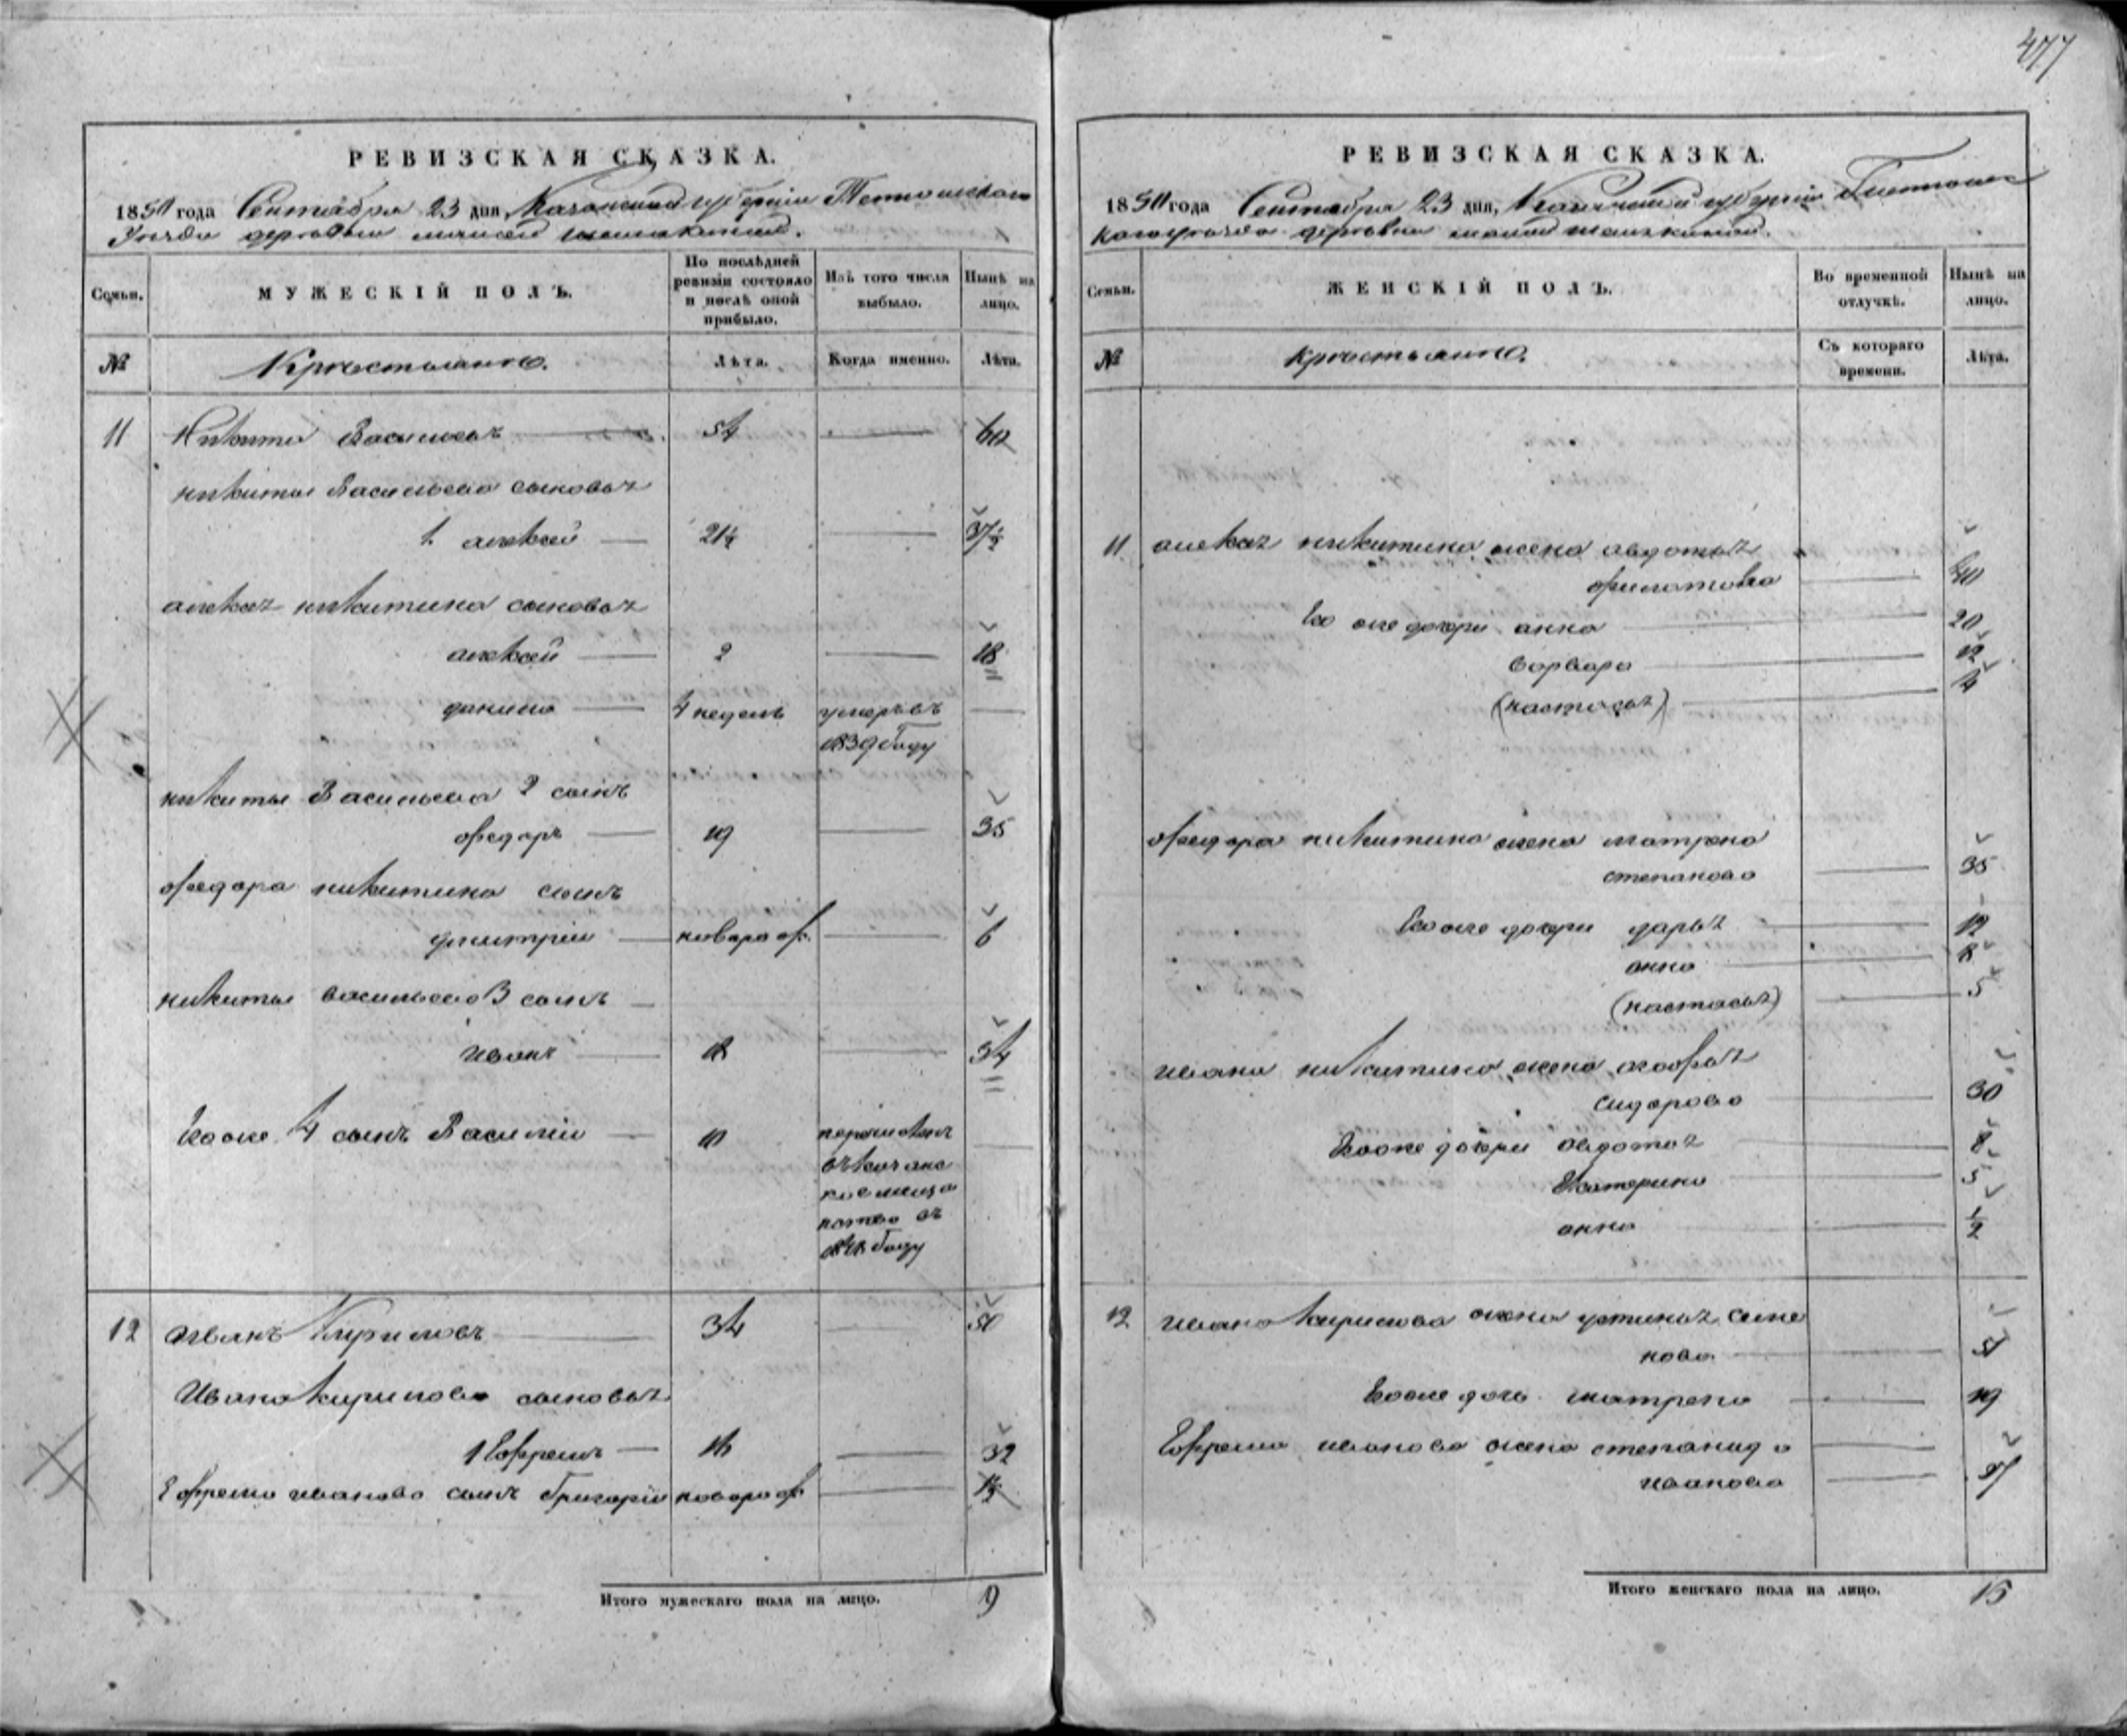 477
РЕВИЗСКАЯ СКАЗКА.
1850 года Сентября 23 дня, Казанской губернии Тетюшскаго
Уезда деревни малой шемякиной.
Семьи.
МУЖЕСКІЙ ПОЛЪ.
По послѣдней ревизіи состояло и послѣ оной прибыло.
Изъ того числа выбыло.
Нынѣ на лицо.
№
Крестьяне.
Лѣта.
Когда именно.
Лѣта.
11 Никита Васильевъ 54 60
никиты Васильева сыновья
1. алексей 21½ 37½
алексея никитина сыновья
алексей 2 18
данило 4 недель умеръ въ
1839 году
никиты Васильева 2 сынъ
федоръ 19 35
федора никитина сынъ
дмитрій новорож. 6
никиты васильева 3 сынъ
Иванъ 18 34
Его же 4 сынъ Василій 10 перечисленъ
въ казанс
кое меща
нство въ
году
12 Иванъ Кириловъ 34 50
Ивана кирилова сыновья
1 Ефремъ 16 32
Ефрема иванова сынъ Григорій новорож. 1½
Итого мужескаго пола на лицо. 9
РЕВИЗСКАЯ СКАЗКА.
1850 года Сентября 23 дня, Казанской губерніи Тетюшс
каго уезда деревни малой шемякиной.
Семьи.
ЖЕНСКІЙ ПОЛЪ.
Во временной отлучкѣ.
Нынѣ на лицо.
№
крестьяне.
Съ котораго времени.
Лѣта.
11 алексея никитина жена авдотья
филатова 40
Его же дочери анна 20
варвара 12
(настасья) 4
федора никитина жена матрена
степанова 35
Его же дочери дарья 12
анна 8
(настасья) 5
ивана никитина жена агафья
сидорова 30
Его же дочери авдотья 8
Екатерина 5
анна ½
12 ивана кирилова жена устинья семе
нова 51
Его же дочь матрена 19
Ефрема иванова жена степанида
иванова 37
Итого женскаго пола на лицо. 15